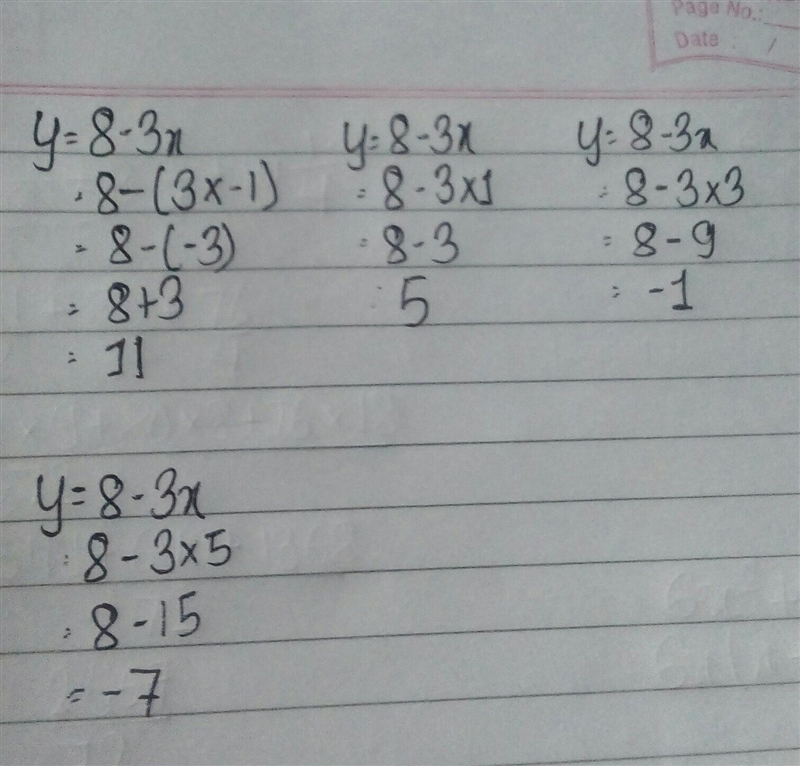 Page No.:
Date : /
y = 8 - 3x
= 8 - (3 x -1)
= 8 - (-3)
= 8 + 3
= 11
y = 8 - 3x
= 8 - 3 x 1
= 8 - 3
: 5
y = 8 - 3x
= 8 - 3 x 3
= 8 - 9
= -1
y = 8 - 3x
= 8 - 3 x 5
= 8 - 15
= -7